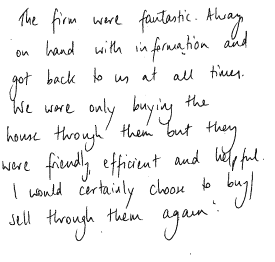 The firm were fantastic. Always
on hand with information and
got back to us at all times.
We were only buying the
house through them but they
were friendly, efficient and helpful.
I would certainly choose to buy/
sell through them again.